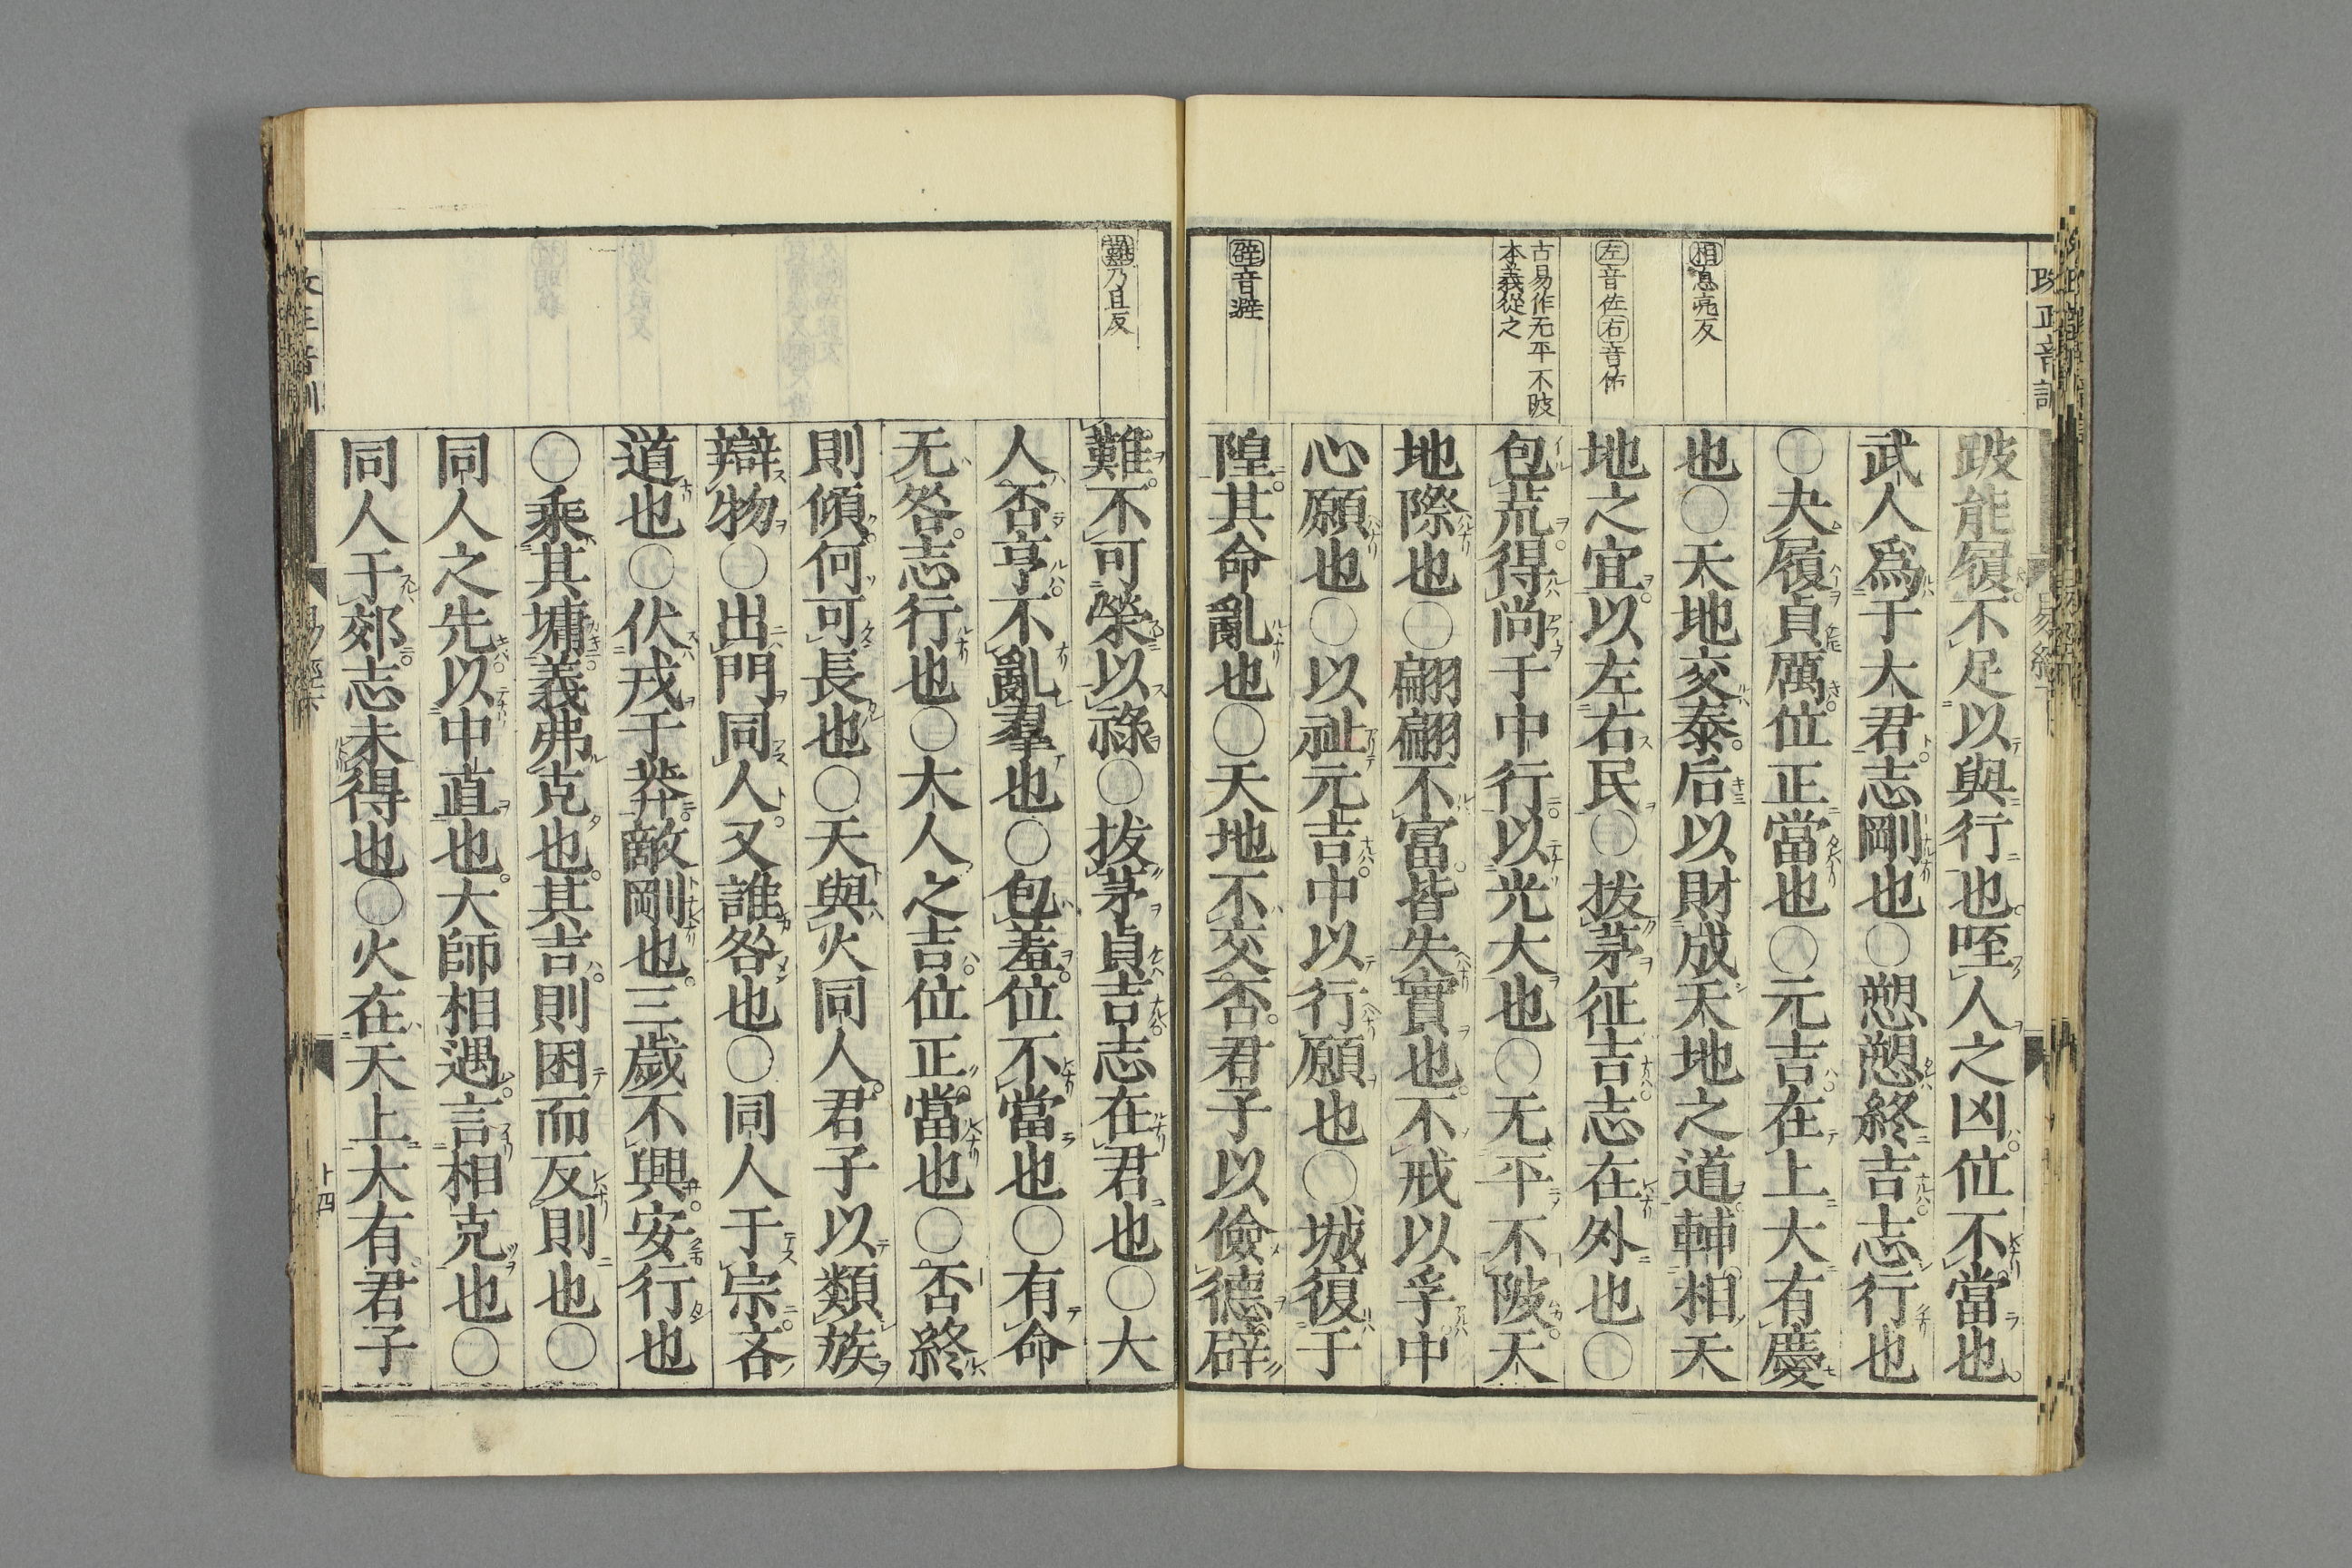 跛能履不足以與行也咥人之凶位不當也
武人爲于大君志剛也〇愬愬終吉志行也
〇夬履貞厲位正當也〇元吉在上大有慶
也〇天地交泰后以財成天地之道輔相天
地之宜以左右民〇拔茅征吉志在外也〇
包荒得尚于中行以光大也〇无平不陂天
地際也〇翩翩不富皆失實也不戒以孚中
心願也〇以祉元吉中以行願也〇城復于
隍其命亂也〇天地不交否君子以儉德辟
相息亮反
左音佐右音佑
古易作无平不陂
本義從之
辟音避
難不可榮以祿〇拔茅貞吉志在君也〇大
人否亨不亂羣也〇包羞位不當也〇有命
无咎志行也〇大人之吉位正當也〇否終
則傾何可長也〇天與火同人君子以類族
辯物〇出門同人又誰咎也〇同人于宗吝
道也〇伏戎于莽敵剛也三歲不興安行也
〇乘其墉義弗克也其吉則困而反則也〇
同人之先以中直也大師相遇言相克也〇
同人于郊志未得也〇火在天上大有君子
難乃旦反